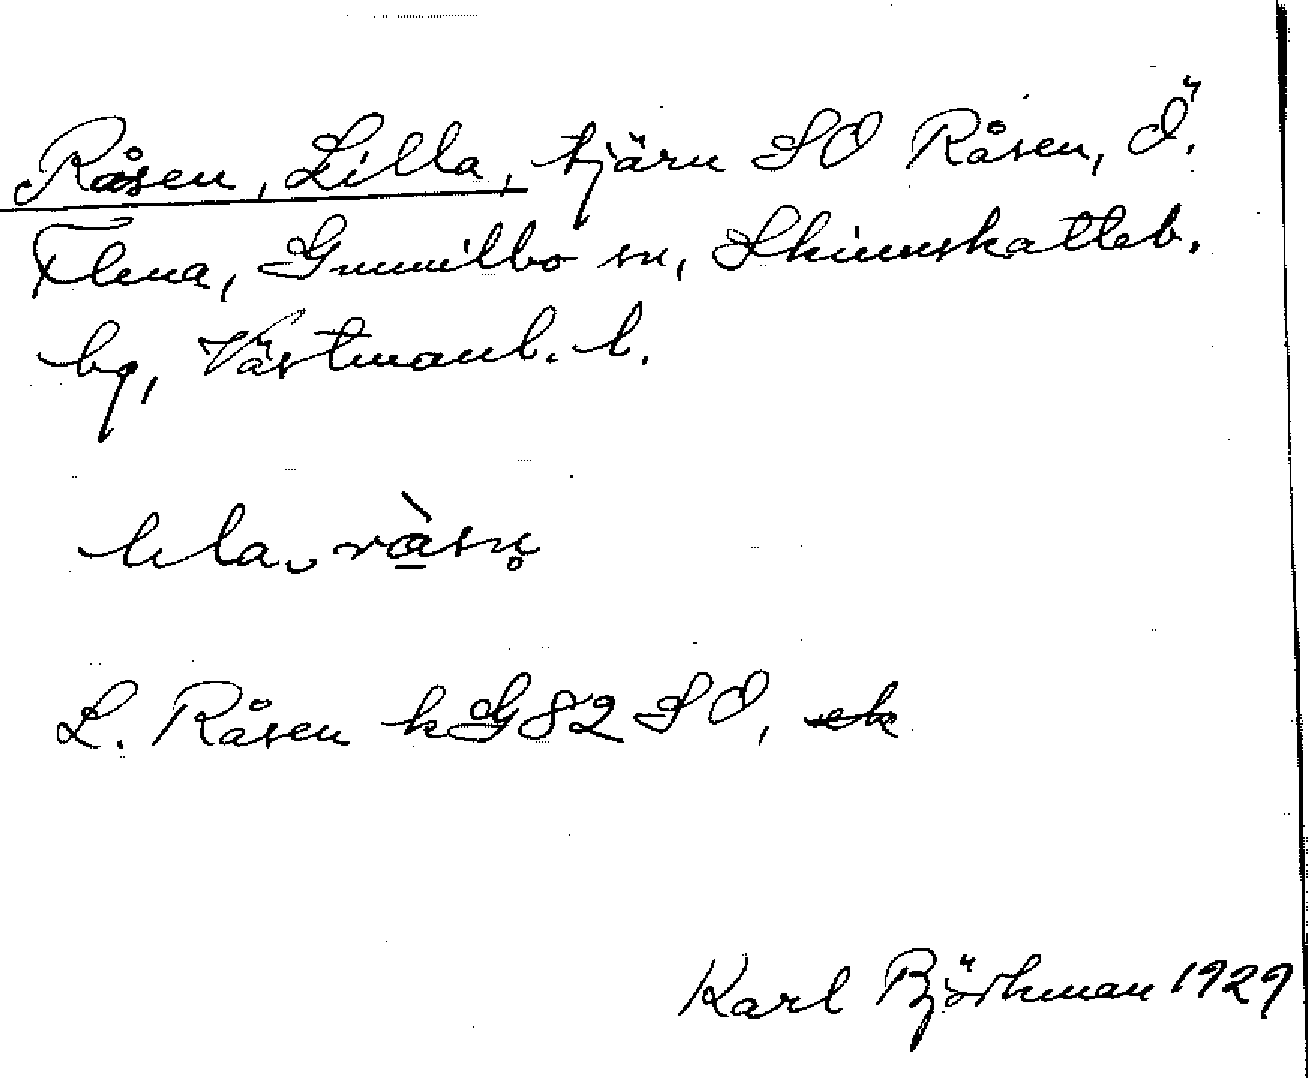 Råsen, Lilla, tjärn SO Råsen, Ö.
Flena, Gunnilbo sn, Skinnskatteb.
bg, Västmanl. l.
L. Råsen kG82 SO, ek
Karl Björkman 1929